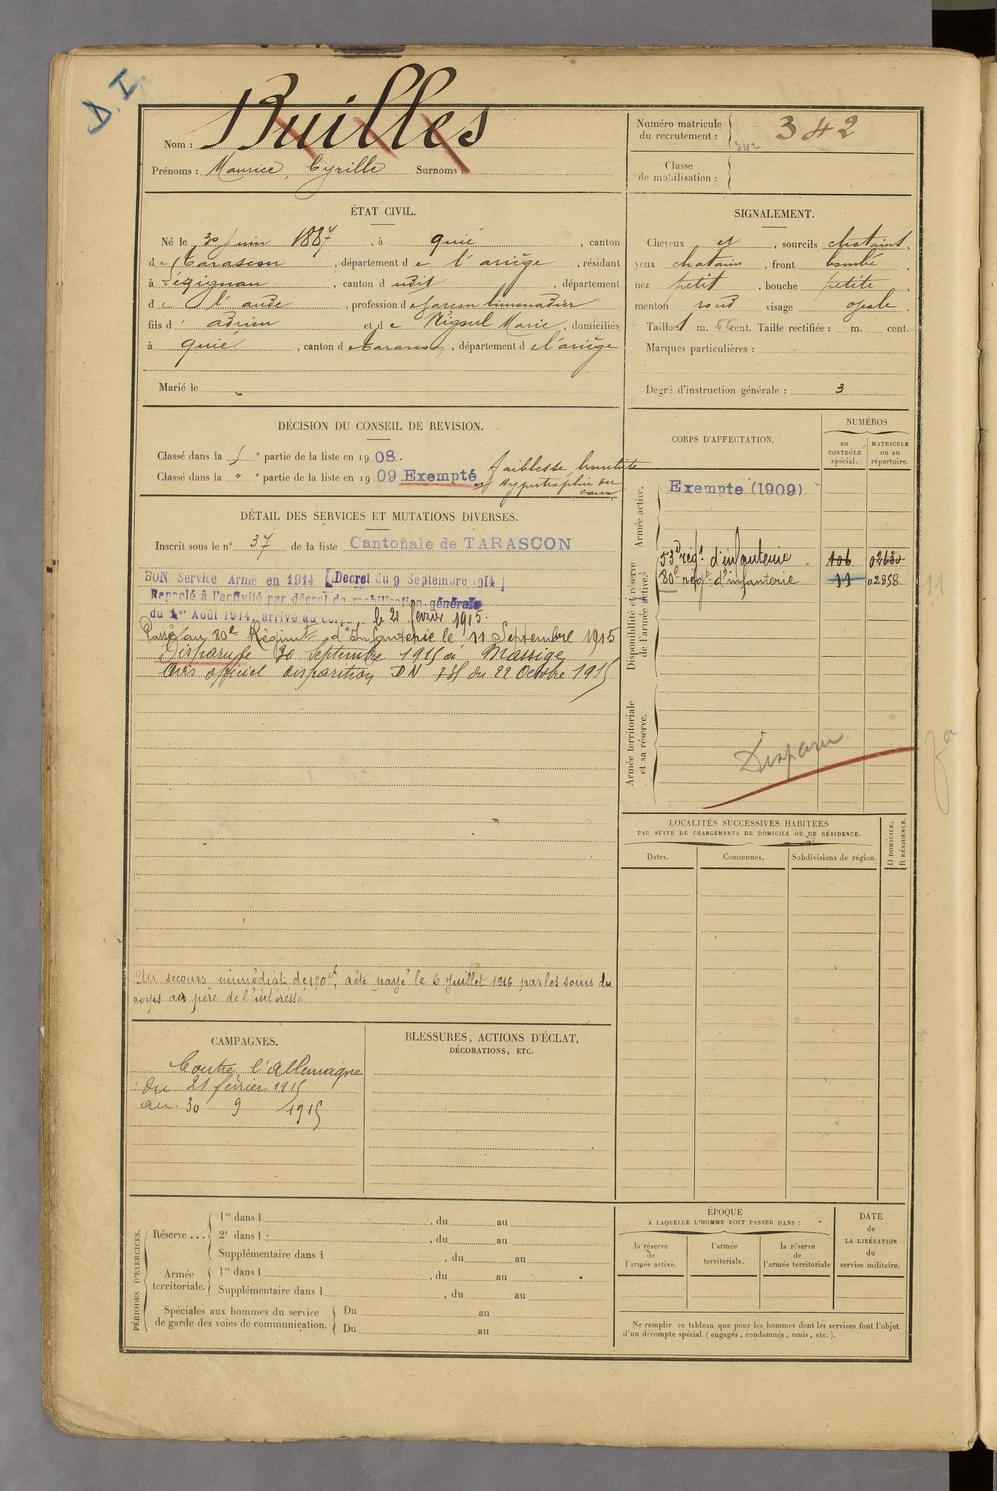 D. I
Nom : Builles
Prénoms : Maurice, Cyrille Surnoms :
Numéro matricule
du recrutement : 342
342
Classe
de mobilisation :
ÉTAT CIVIL.
Né le 30 Juin 1887, à quié, canton
de Tarascon, département de l'ariège, résidant
à Lézignan, canton d udit, département
de l'aude, profession de garcon limonadier
fils d' adrien et de Rigoul Marie, domiciliés
à quié, canton d e Tarascon, département de l'ariège
Marié le
SIGNALEMENT.
Cheveux et, sourcils chatains,
yeux chatains, front bombé,
nez petit, bouche petite,
menton rond visage ovale.
Taille 1 m. 66 cent. Taille rectifiée : m. cent.
Marques particulières :
Degré d'instruction générale : 3
DÉCISION DU CONSEIL DE REVISION.
Classé dans la 5 e partie de la liste en 1908.
Classé dans la " e partie de la liste en 1909 Exempté faiblesse bronchite
Hypertrophie du
cœur
DÉTAIL DES SERVICES ET MUTATIONS DIVERSES.
Inscrit sous le n° 37 de la liste Cantonale de TARASCON
BON Service Armé en 1914 [Decret du 9 Septembre 1914]
Rappelé à l'activité par décret de mobilisation générale
du 1er Août 1914, arrivé au corps, le 21 février 1915.
Passé au 80e Régiment d'Infanterie le 11 Septembre 1915
Disparu le 30 Septembre 1915 à Massiges
Avis officiel disparition DN du 22 Octobre 1915
Un secours immédiat de 150 f, a été payé le 6 Juillet 1916 par les soins du
corps au père de l'intéressé
CORPS D'AFFECTATION.
NUMÉROS
au
CONTRÔLE
spécial.
MATRICULE
ou au
répertoire.
Armée active.
Exempte (1909)
Disponibilité et réserve
de l'armée active.
53e régt. d'infanterie 106 02630
80e régt. d'infanterie 11 02858
11
Armée territoriale
et sa réserve.
Disparu
LOCALITÉS SUCCESSIVES HABITÉES
PAR SUITE DE CHANGEMENTS DE DOMICILE OU DE RÉSIDENCE.
Dates. Communes. Subdivisions de région.
D DOMICILE.
R RÉSIDENCE.
CAMPAGNES.
Contre l'Allemagne
du 21 février 1915
au 30 9 1915
BLESSURES, ACTIONS D'ÉCLAT,
DÉCORATIONS, ETC.
PÉRIODES D'EXERCICES.
Réserve ...
1re dans l , du au
2e dans l , du au
Supplémentaire dans l , du au
Armée
territoriale.
1re dans l , du au
Supplémentaire dans l , du au
Spéciales aux hommes du service
de garde des voies de communication.
Du au
Du au
ÉPOQUE
À LAQUELLE L'HOMME DOIT PASSER DANS :
la réserve
de
l'armée active.
l'armée
territoriale.
la réserve
de
l'armée territoriale
DATE
de
LA LIBÉRATION
du
service militaire.
Ne remplir ce tableau que pour les hommes dont les services font l'objet
d'un décompte spécial (engagés, condamnés, omis, etc.).